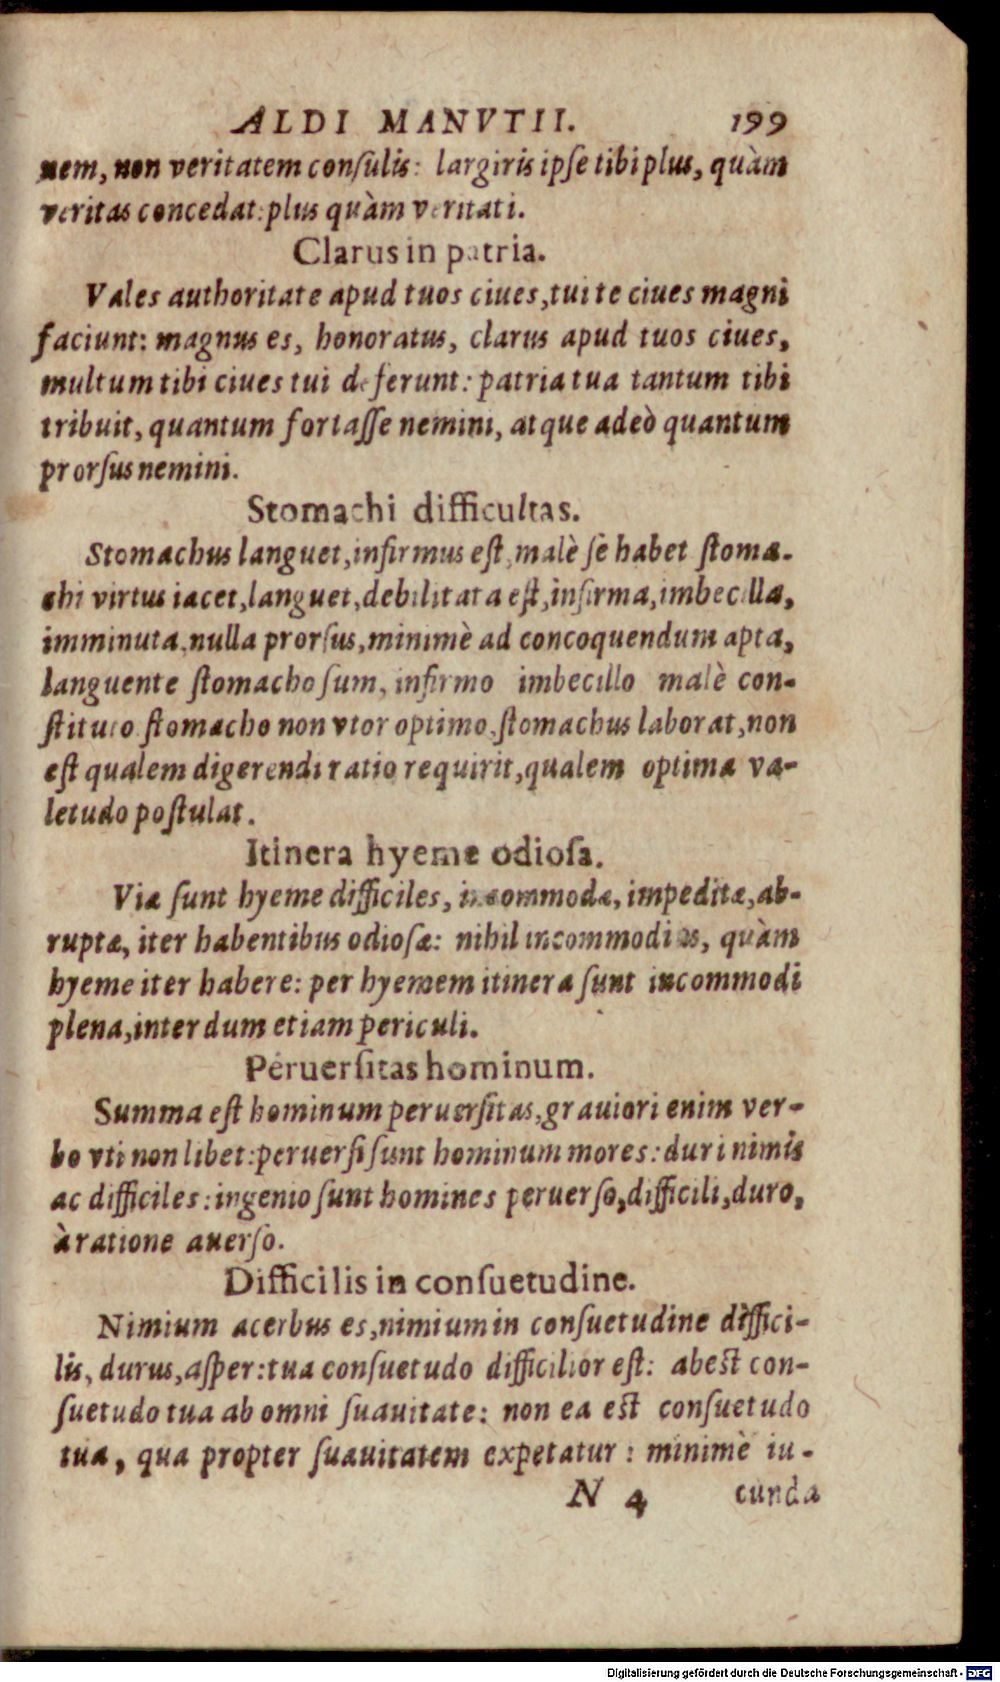 ALDI MANVTII. 199
nem, non veritatem conſulis: largiris ipſe tibi plus, quàm
veritas concedat: plus quàm veritati.
Clarus in patria.
Vales authoritate apud tuos ciues, tui te ciues magni
faciunt: magnus es, honoratus, clarus apud tuos ciues,
multum tibi ciues tui deferunt: patria tua tantum tibi
tribuit, quantum fortaſſe nemini, atque adeò quantum
prorſus nemini.
Stomachi difficultas.
Stomachus languet, infirmus eſt, malè ſe habet ſtoma-
chi virtus iacet, languet, debilitata eſt, infirma, imbecilla,
imminuta, nulla prorſus, minimè ad concoquendum apta,
languente ſtomacho ſum, infirmo imbecillo malè con-
ſtituto ſtomacho non vtor optimo, ſtomachus laborat, non
eſt qualem digerendi ratio requirit, qualem optima va-
letudo poſtulat.
Itinera hyeme odioſa.
Viæ ſunt hyeme difficiles, incommodæ, impeditæ, ab-
ruptæ, iter habentibus odioſæ: nihil incommodius, quàm
hyeme iter habere: per hyemem itinera ſunt incommodi
plena, interdum etiam periculi.
Peruerſitas hominum.
Summa eſt hominum peruerſitas, grauiori enim ver-
bo vti non libet: peruerſi ſunt hominum mores: duri nimis
ac difficiles: ingenio ſunt homines peruerſo, difficili, duro,
à ratione auerſo.
Difficilis in conſuetudine.
Nimium acerbus es, nimium in conſuetudine diffici-
lis, durus, aſper: tua conſuetudo difficilior eſt: abeſt con-
ſuetudo tua ab omni ſuauitate: non ea eſt conſuetudo
tua, qua propter ſuauitatem expetatur: minimè iu-
N 4 cunda
Digitalisierung gefördert durch die Deutsche Forschungsgemeinschaft - DFG